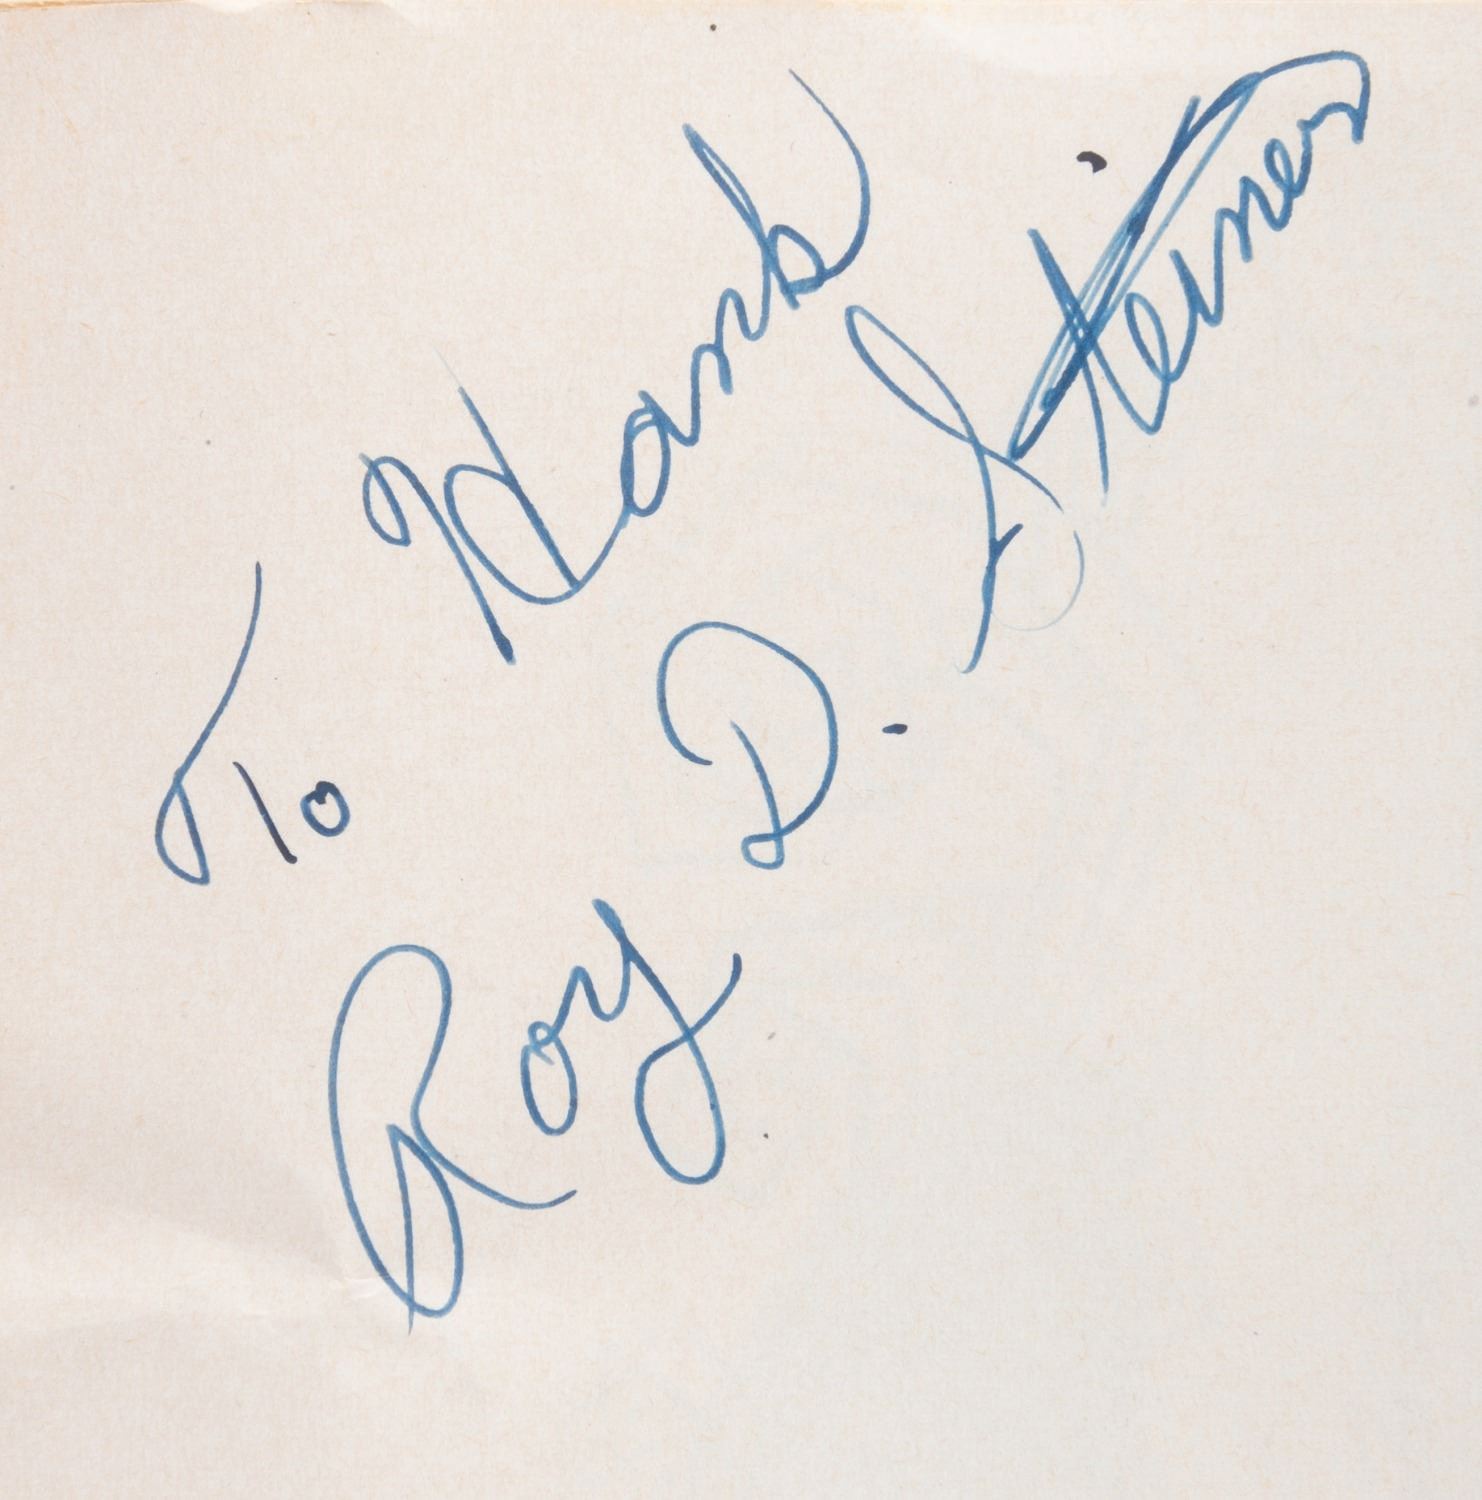 To Hank
Roy D. Steiner